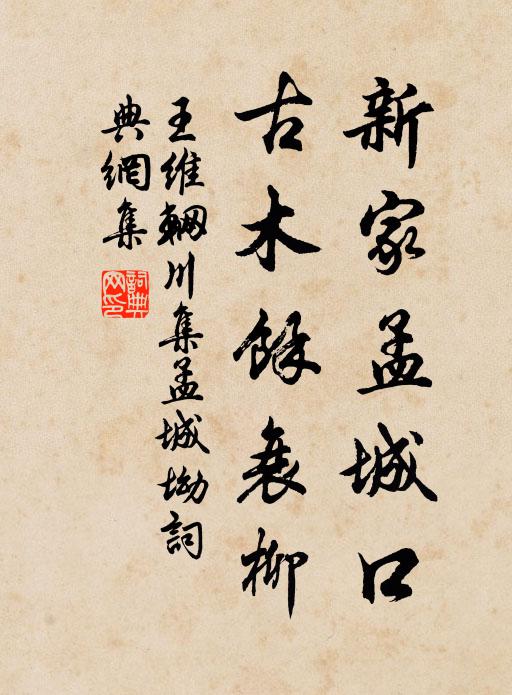 新家孟城口
古木餘衰柳
王維輞川集孟城坳詞
典網集
詞典
网印